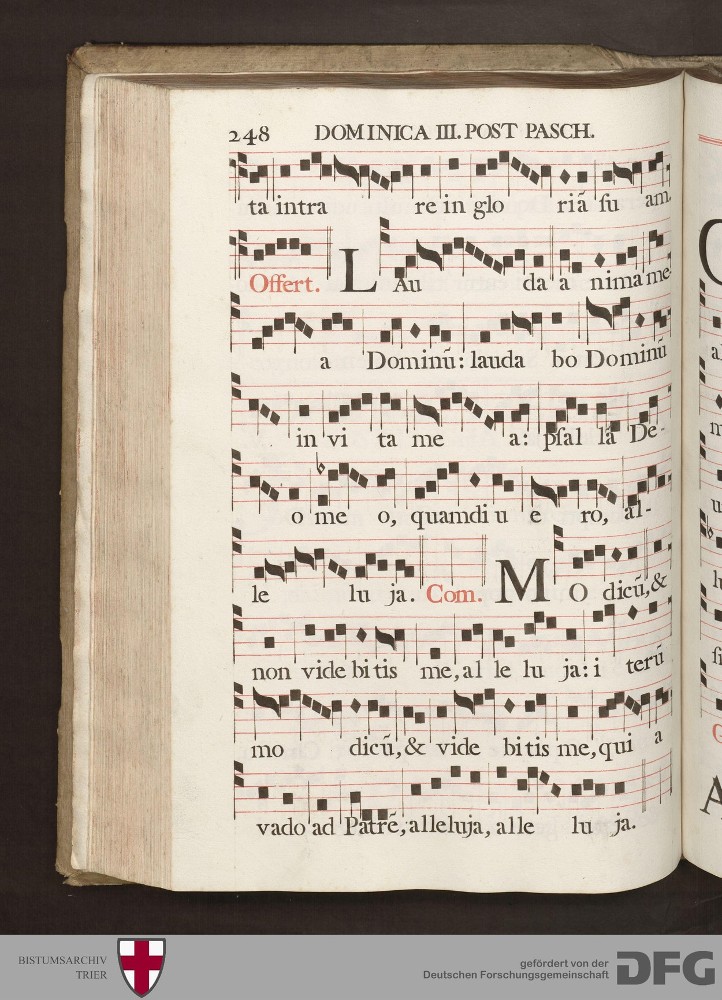 248 DOMINICA III. POST PASCH.
ta intra re in glo riã ſu am.
Offert. LAu da a nima me-
a Dominũ: lauda bo Dominũ
in vi ta me a: pſal lã De-
o me o, quamdi u e ro, al-
le lu ja. Com. MO dicũ, &
non vide bi tis me, al le lu ja: i terũ
mo dicũ, & vide bi tis me, qui a
vado ad Patrẽ, alleluja, alle lu ja.
BISTUMSARCHIV
TRIER
gefördert von der
Deutschen Forschungsgemeinschaft
DFG